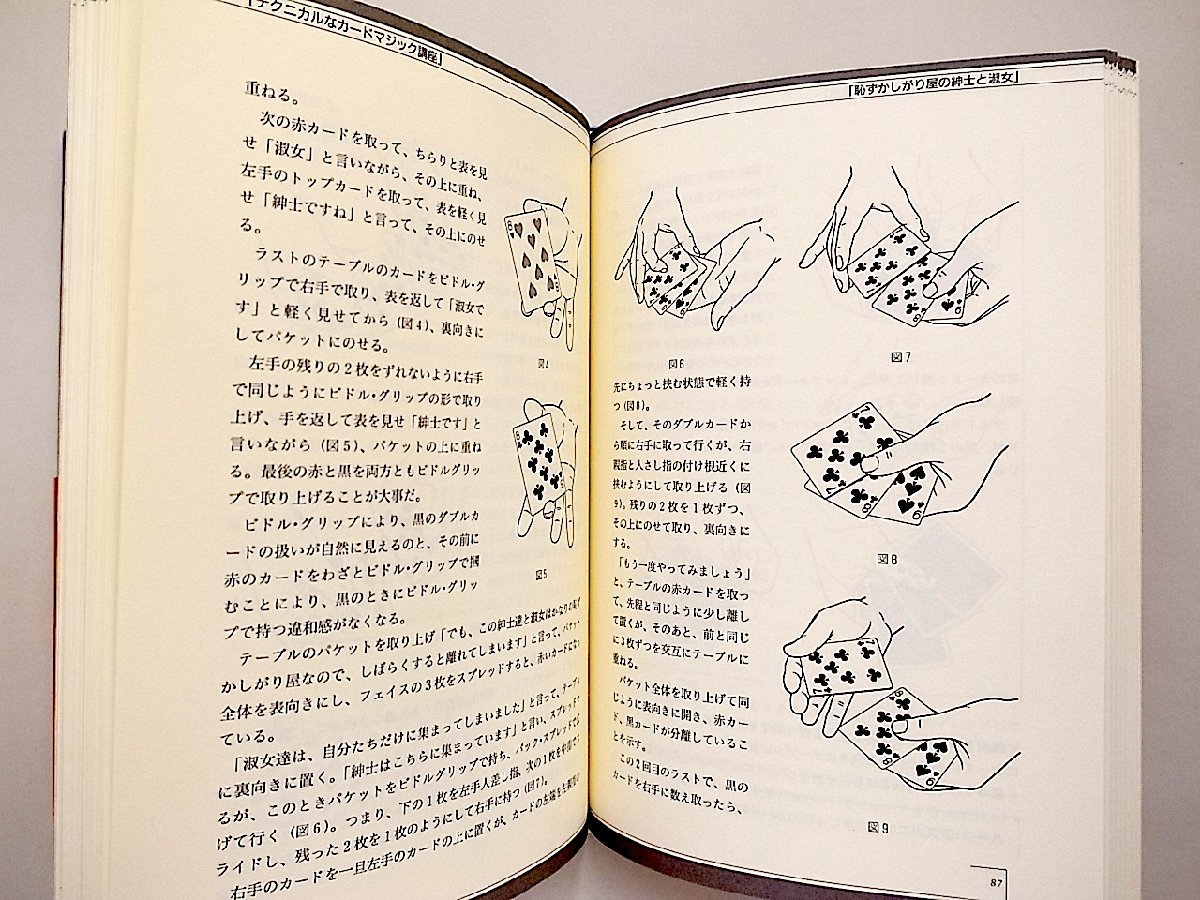 「テクニカルなカードマジック講座」
重ねる。
次の赤カードを取って、ちらりと表を見
せ「淑女」と言いながら、その上に重ね、
左手のトップカードを取って、表を軽く見
せ「紳士ですね」と言って、その上にのせ
る。
ラストのテーブルのカードをビドル・グ
リップで右手で取り、表を返して「淑女で
す」と軽く見せてから（図4）、裏向きに
してパケットにのせる。
左手の残りの2枚をずれないように右手
で同じようにビドル・グリップの形で取り
上げ、手を返して表を見せ「紳士です」と
言いながら（図5）、パケットの上に重ね
る。最後の赤と黒を両方ともビドルグリッ
プで取り上げることが大事だ。
ビドル・グリップにより、黒のダブルカ
ードの扱いが自然に見えるのと、その前に
赤のカードをわざとビドル・グリップで摑
むことにより、黒のときにビドル・グリッ
プで持つ違和感がなくなる。
テーブルのパケットを取り上げ「でも、この紳士達と淑女はかなりの恥ず
かしがり屋なので、しばらくすると離れてしまいます」と言って、パケット
全体を表向きにし、フェイスの3枚をスプレッドすると、赤いカードになっ
ている。
「淑女達は、自分たちだけに集まってしまいました」と言って、テーブル
に裏向きに置く。「紳士はこちらに集まっています」と言い、スプレッドす
るが、このときパケットをビドルグリップで持ち、バック・スプレッドで広
げて行く（図6）。つまり、下の1枚を左手人差し指、次の1枚を中指でス
ライドし、残った2枚を1枚のようにして右手に持つ（図7）。
右手のカードを一旦左手のカードの上に置くが、カードの左端を左親指の
図4
図5
「恥ずかしがり屋の紳士と淑女」
図6
図7
先にちょっと挟む状態で軽く持
つ（図8）。
そして、そのダブルカードか
ら順に右手に取って行くが、右
親指と人さし指の付け根近くに
挟むようにして取り上げる（図
9）。残りの2枚を1枚ずつ、
その上にのせて取り、裏向きに
する。
「もう一度やってみましょう」
と、テーブルの赤カードを取っ
て、先程と同じように少し離し
て置くが、そのあと、前と同じ
に3枚ずつを交互にテーブルに
重ねる。
パケット全体を取り上げて同
じように表向きに開き、赤カー
ド、黒カードが分離しているこ
とを示す。
この2回目のラストで、黒の
カードを右手に数え取ったら、
図8
図9
87